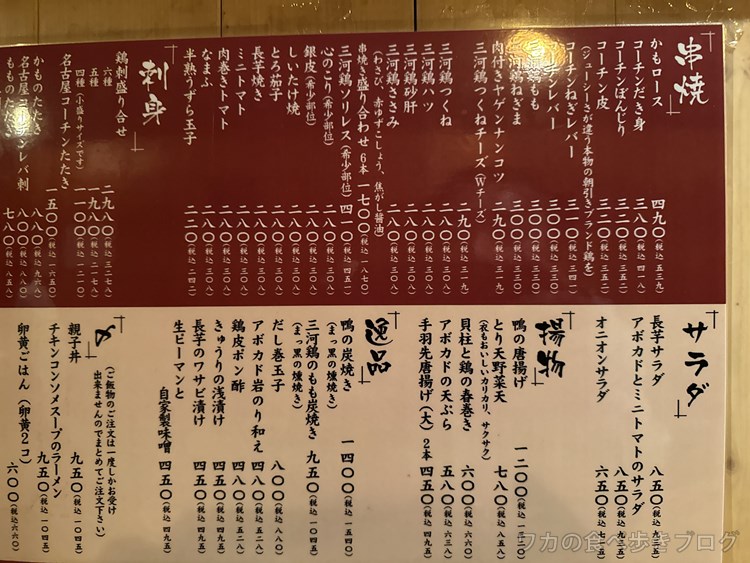 串焼
かもロース 四九〇(税込 五三九)
コーチンだき身 三八〇(税込 四一八)
コーチンぼんじり 三二〇(税込 三五二)
コーチン皮 三二〇(税込 三五二)
(ジューシーさが違う本物の朝引きブランド鶏を)
コーチンねぎレバー 三一〇(税込 三四一)
レバー 三〇〇(税込 三三〇)
もも 三〇〇(税込 三三〇)
三河鶏ねぎま 三〇〇(税込 三三〇)
肉付きヤゲンナンコツ 二九〇(税込 三一九)
三河鶏つくねチーズ(Wチーズ)
三河鶏つくね 二九〇(税込 三一九)
三河鶏ハツ 二八〇(税込 三〇八)
三河鶏砂肝 二八〇(税込 三〇八)
三河鶏ささみ 二八〇(税込 三〇八)
(わさび、赤ゆずこしょう、焦がし醤油)
串焼き盛り合わせ 6本 一七〇〇(税込 一八七〇)
三河鶏ソリレス(希少部位) 四一〇(税込 四五一)
心のこり(希少部位) 二八〇(税込 三〇八)
銀皮(希少部位) 二八〇(税込 三〇八)
しいたけ焼 二八〇(税込 三〇八)
とろ茄子 二八〇(税込 三〇八)
長芋焼き 二八〇(税込 三〇八)
ミニトマト 二八〇(税込 三〇八)
肉巻きトマト 二八〇(税込 三〇八)
なまふ 二八〇(税込 三〇八)
半熟うずら玉子 二二〇(税込 二四二)
刺身
鶏刺盛り合せ
六種 二九八〇(税込 三二七八)
五種 一九八〇(税込 二一七八)
四種(小盛りサイズです) 一一〇〇(税込 一二一〇)
名古屋コーチンたたき 一五〇〇(税込 一六五〇)
かものたたき 八八〇(税込 九六八)
名古屋コーチンレバ刺 八八〇(税込 九六八)
もものたたき 七八〇(税込 八五八)
サラダ
長芋サラダ 八五〇(税込 九三五)
アボカドとミニトマトのサラダ 八五〇(税込 九三五)
オニオンサラダ 六五〇(税込 七一五)
揚物
鴨の唐揚げ 一二〇〇(税込 一三二〇)
とり天野菜天 七八〇(税込 八五八)
(衣もおいしいカリカリ、サクサク)
貝柱と鶏の春巻き 六〇〇(税込 六六〇)
アボカドの天ぷら 五八〇(税込 六三八)
手羽先唐揚げ(大) 2本 四五〇(税込 四九五)
逸品
鴨の炭焼き 一四〇〇(税込 一五四〇)
(まっ黒の燻焼き)
三河鶏のもも炭焼き 九五〇(税込 一〇四五)
(まっ黒の燻焼き)
だし巻玉子 八〇〇(税込 八八〇)
アボカド岩のり和え 四八〇(税込 五二八)
鶏皮ポン酢 四八〇(税込 五二八)
きゅうりの浅漬け 四五〇(税込 四九五)
長芋のワサビ漬け 四五〇(税込 四九五)
生ピーマンと自家製味噌 四五〇(税込 四九五)
〆
(ご飯物のご注文は一度しかお受け
出来ませんのでまとめてご注文下さい)
親子丼 九五〇(税込 一〇四五)
チキンコンソメスープのラーメン 九五〇(税込 一〇四五)
卵黄ごはん(卵黄2コ) 六〇〇(税込 六六〇)
フカの食べ歩きブログ